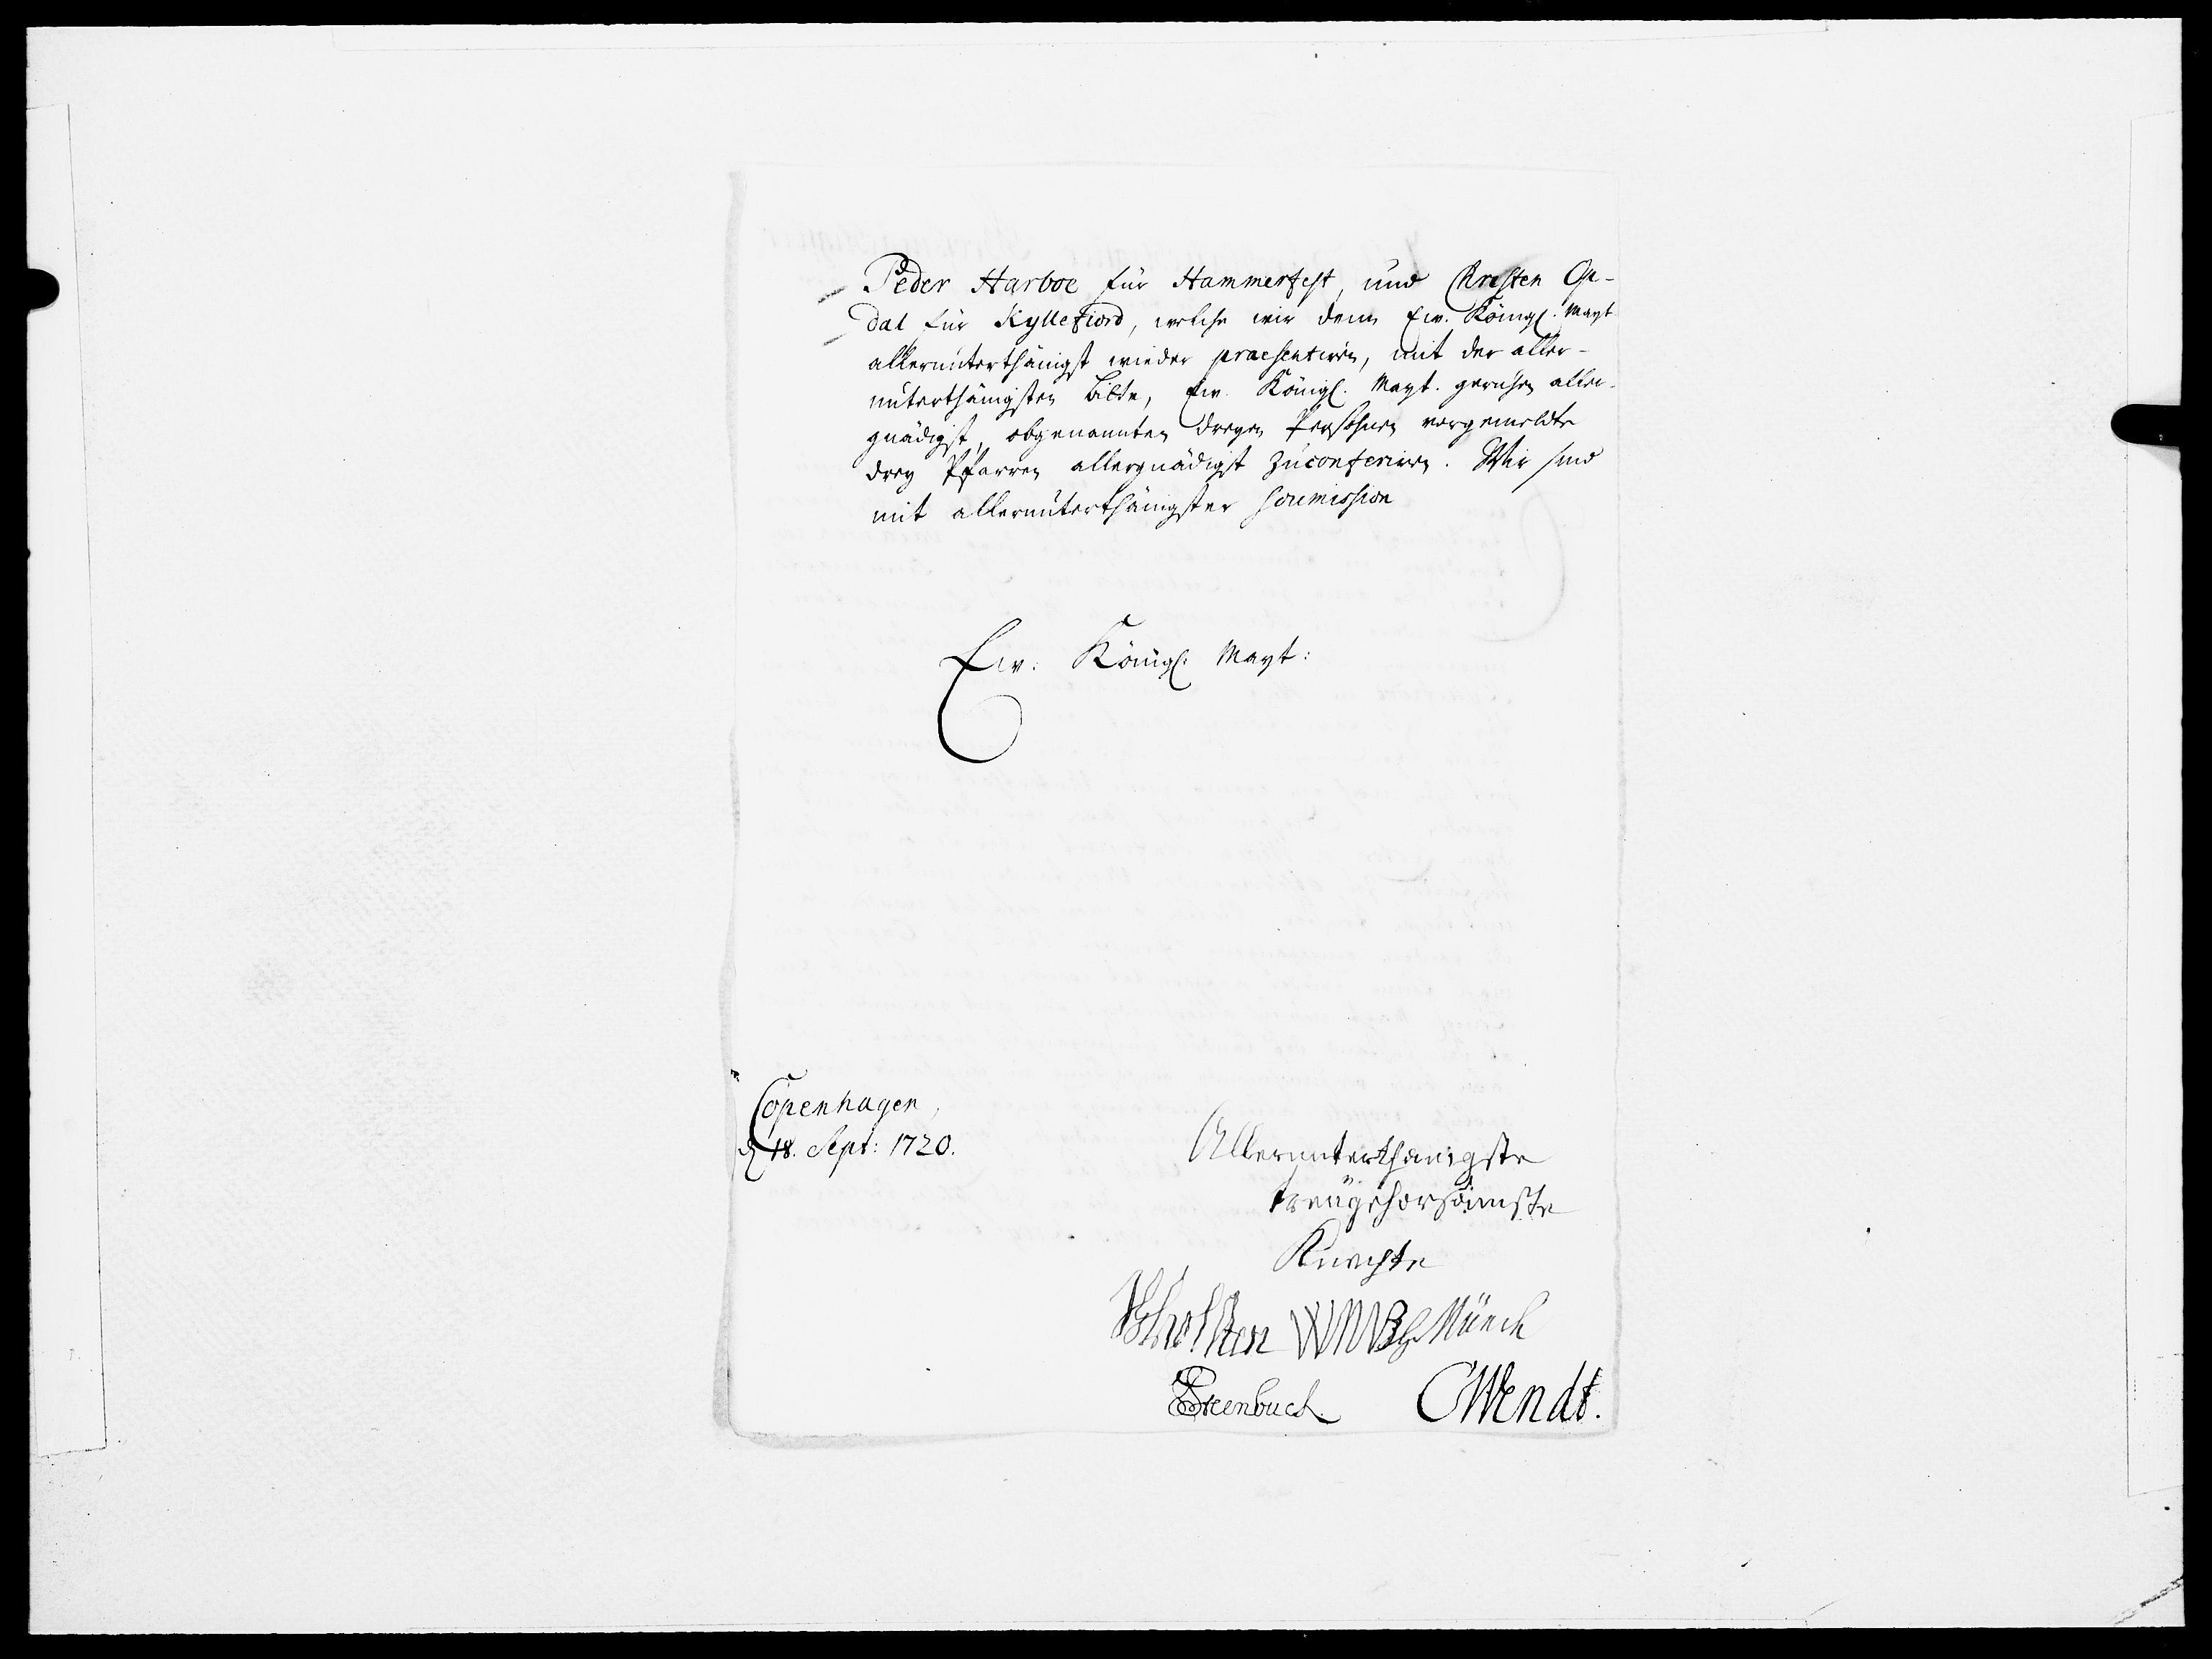 Peder Harboe für Hammerfest, und Christen Op-
dal für Kyllefiord, welche wir denn Ew. Königl. Mayt
allerunterthänigst wieder praesentiren, mit der aller-
unterthänigsten bitte, Ew. Königl. Mayt. geruhen aller-
gnädigst, obgenannten dreyen Persohnen vorgemeldte
drey Pfarren allergnädigst zu conferiren. Wir sind
mit allerunterthänigster soumission
Ew: Königl. Mayt:
Copenhagen,
d 18. Sept: 1720.
Allerunterthänigste
treügehorsamste
Knechte
Holsten Münch
Steenbuch. CWendt.